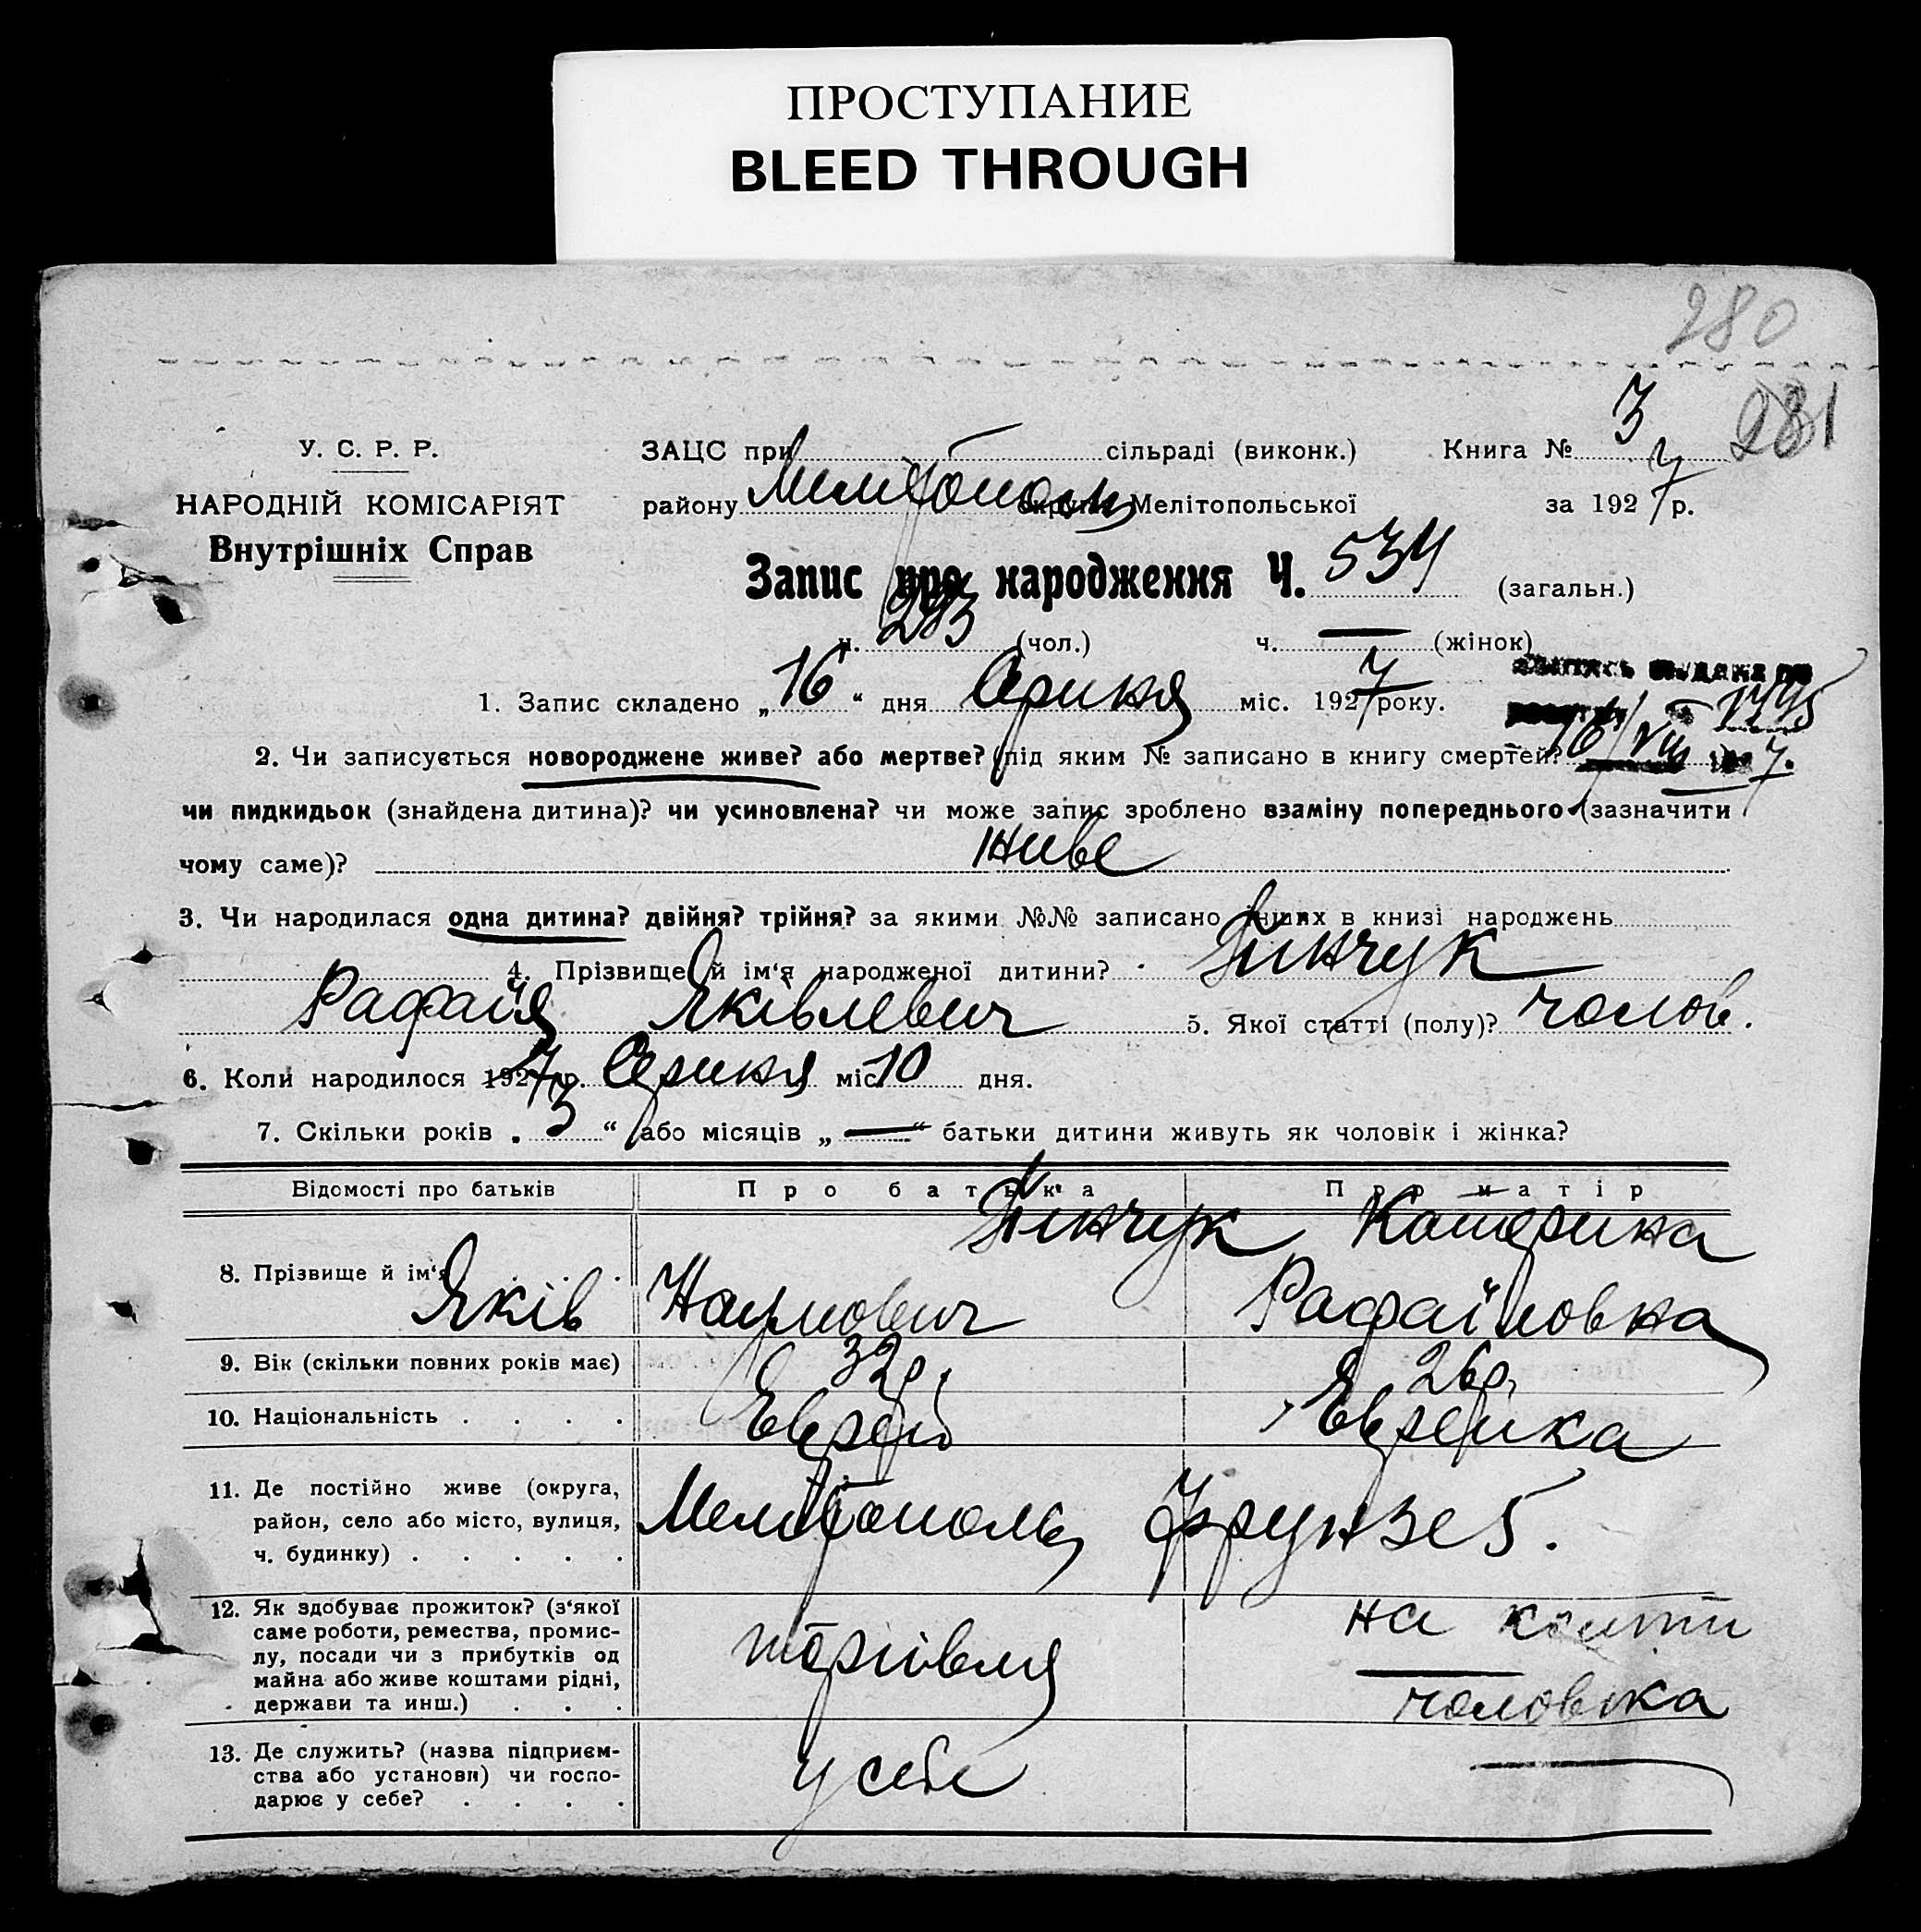 ПРОСТУПАНИЕ
BLEED THROUGH
280
281
У. С. Р. Р.
ЗАЦС при сільраді (виконк.) Книга № 3
НАРОДНІЙ КОМІСАРІЯТ
району Мелітополь округи Мелітопольської за 1927 р.
Внутрішніх Справ
Запис про народження Ч. 534 (загальн.)
ч. 283 (чол.) ч. — (жінок)
1. Запис складено „16“ дня Серпня міс. 1927 року.
2. Чи записується новороджене живе? або мертве? (під яким № записано в книгу смертей?
16/VIII 7.
чи пидкидьок (знайдена дитина)? чи усиновлена? чи може запис зроблено взаміну попереднього (зазначити
чому саме)? живе
3. Чи народилася одна дитина? двійня? трійня? за якими №№ записано інших в книзі народжень
4. Прізвище й ім‘я народженої дитини? Пинчук
Рафаїл Яківлевич 5. Якої статті (полу)? чолов.
6. Коли народилося 1927 р. Серпня міс. 10 дня.
7. Скільки років „3“ або місяців „—“ батьки дитини живуть як чоловік і жінка?
Відомості про батьків Про батька Про матір
8. Прізвище й ім‘я Пинчук Катерина
Яків Наумович Рафаїловна
9. Вік (скільки повних років має) 32р. 26р.
10. Національність . . . . Еврей Еврейка
11. Де постійно живе (округа,
район, село або місто, вулиця, Мелітополь Фрунзе 5.
ч. будинку) . . . . .
12. Як здобуває прожиток? (з‘якої на кошти
саме роботи, ремества, промис-
лу, посади чи з прибутків од торгівля
майна або живе коштами рідні,
держави та инш.) . . . чоловіка
13. Де служить? (назва підприєм-
ства або установи) чи госпо- у себе —
дарює у себе? . . . .